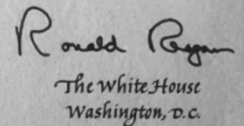 Ronald Reagan
The White House
Washington, D.C.